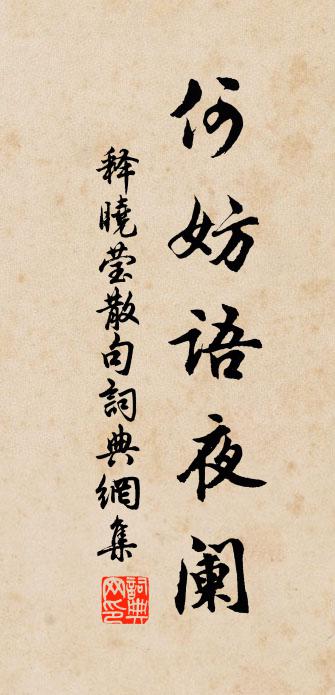 何妨语夜阑
释晓莹散句詞典網集
詞典网印